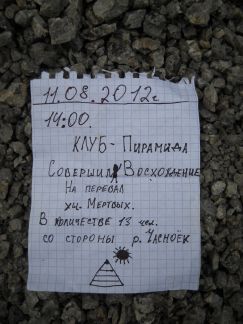 11.08.2012г.
14:00.
КЛУБ - ПИРАМИДА
СОВЕРШИЛ ВОСХОЖДЕНИЕ
НА ПЕРЕВАЛ
УЩ. МЕРТВЫХ.
В КОЛИЧЕСТВЕ 13 ЧЕЛ.
СО СТОРОНЫ Р. ЧАСНОЁК